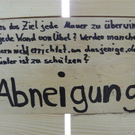 das Ziel jede Mauer zu überwin
jede Wand von Übel? Werden manche
nicht errichtet, um dasjenige, d
ter ist zu schützen?
Abneigung